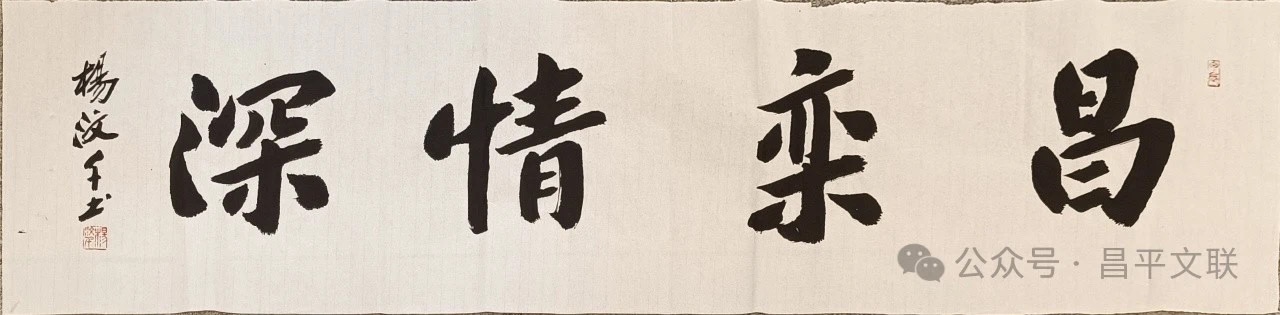 昌栾情深
杨汶千书
公众号 · 昌平文联